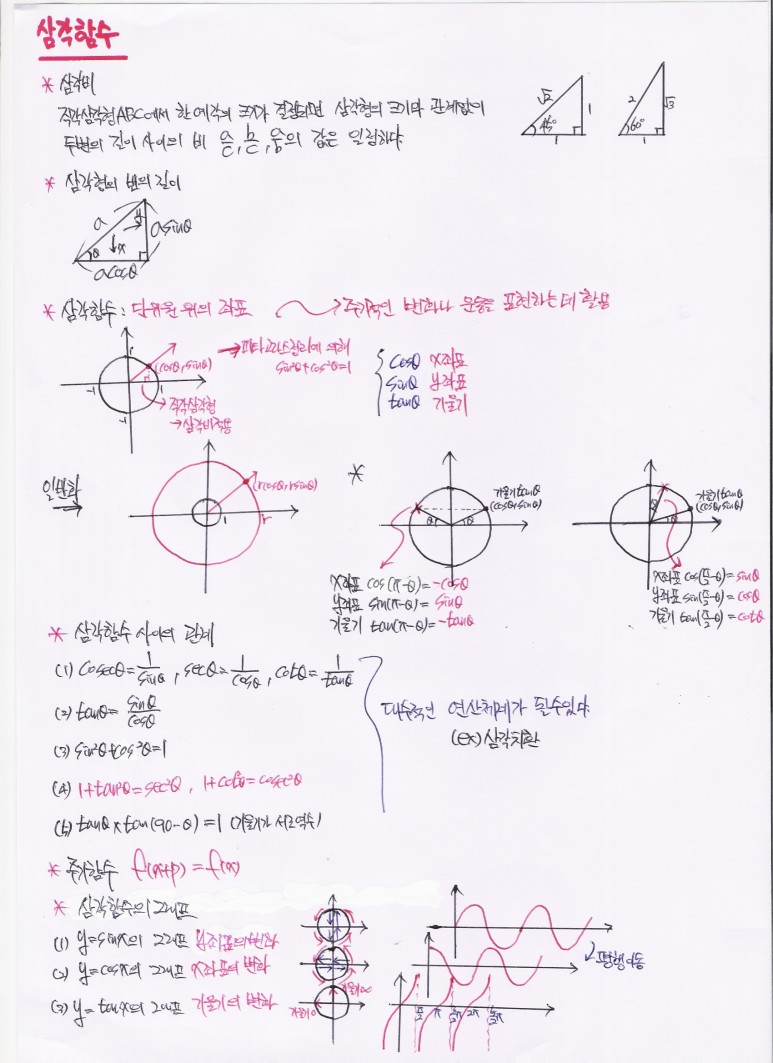 삼각함수
* 삼각비
직각삼각형ABC에서 한 예각의 크기가 결정되면 삼각형의 크기와 관계없이
두변의 길이 사이의 비 는, 는, 등의 값은 일정하다
√2 1 45° 1
2 √3 60° 1
* 삼각형의 변의 길이
a y asinθ
θ x
acosθ
* 삼각함수 : 단위원 위의 좌표 → 주기적인 변화나 운동을 표현하는데 활용
(cosθ, sinθ) → 피타고라스정리에 의해
sin²θ+cos²θ=1
1 -1 1 -1
→ 직각삼각형
→ 삼각비적용
cosθ x좌표
sinθ y좌표
tanθ 기울기
일반화 →
(rcosθ, rsinθ)
1 r
*
기울기tanθ
(cosθ, sinθ)
θ θ
x좌표 cos(π-θ)=-cosθ
y좌표 sin(π-θ)= sinθ
기울기 tan(π-θ)=-tanθ
기울기tanθ
(cosθ, sinθ)
θ θ
x좌표 cos(π/2-θ)=sinθ
y좌표 sin(π/2-θ)=cosθ
기울기 tan(π/2-θ)=cotθ
* 삼각함수 사이의 관계
(1) cosecθ=1/sinθ , secθ=1/cosθ , cotθ=1/tanθ
(2) tanθ= sinθ/cosθ
(3) sin²θ+cos²θ=1
(4) 1+tan²θ=sec²θ , 1+cot²θ=cosec²θ
(5) tanθ×tan(90-θ)=1 (기울기가 서로역수)
대수적인 연산체계가 될수있다
(ex)삼각치환
* 주기함수 f(x+p)=f(x)
* 삼각함수의 그래프
(1) y=sinx의 그래프 y좌표의변화
(2) y=cosx의 그래프 x좌표의 변화
(3) y= tanx의 그래프 기울기의 변화
기울기0 기울기∞
평행이동
π/2 π 3/2π 2π 5/2π